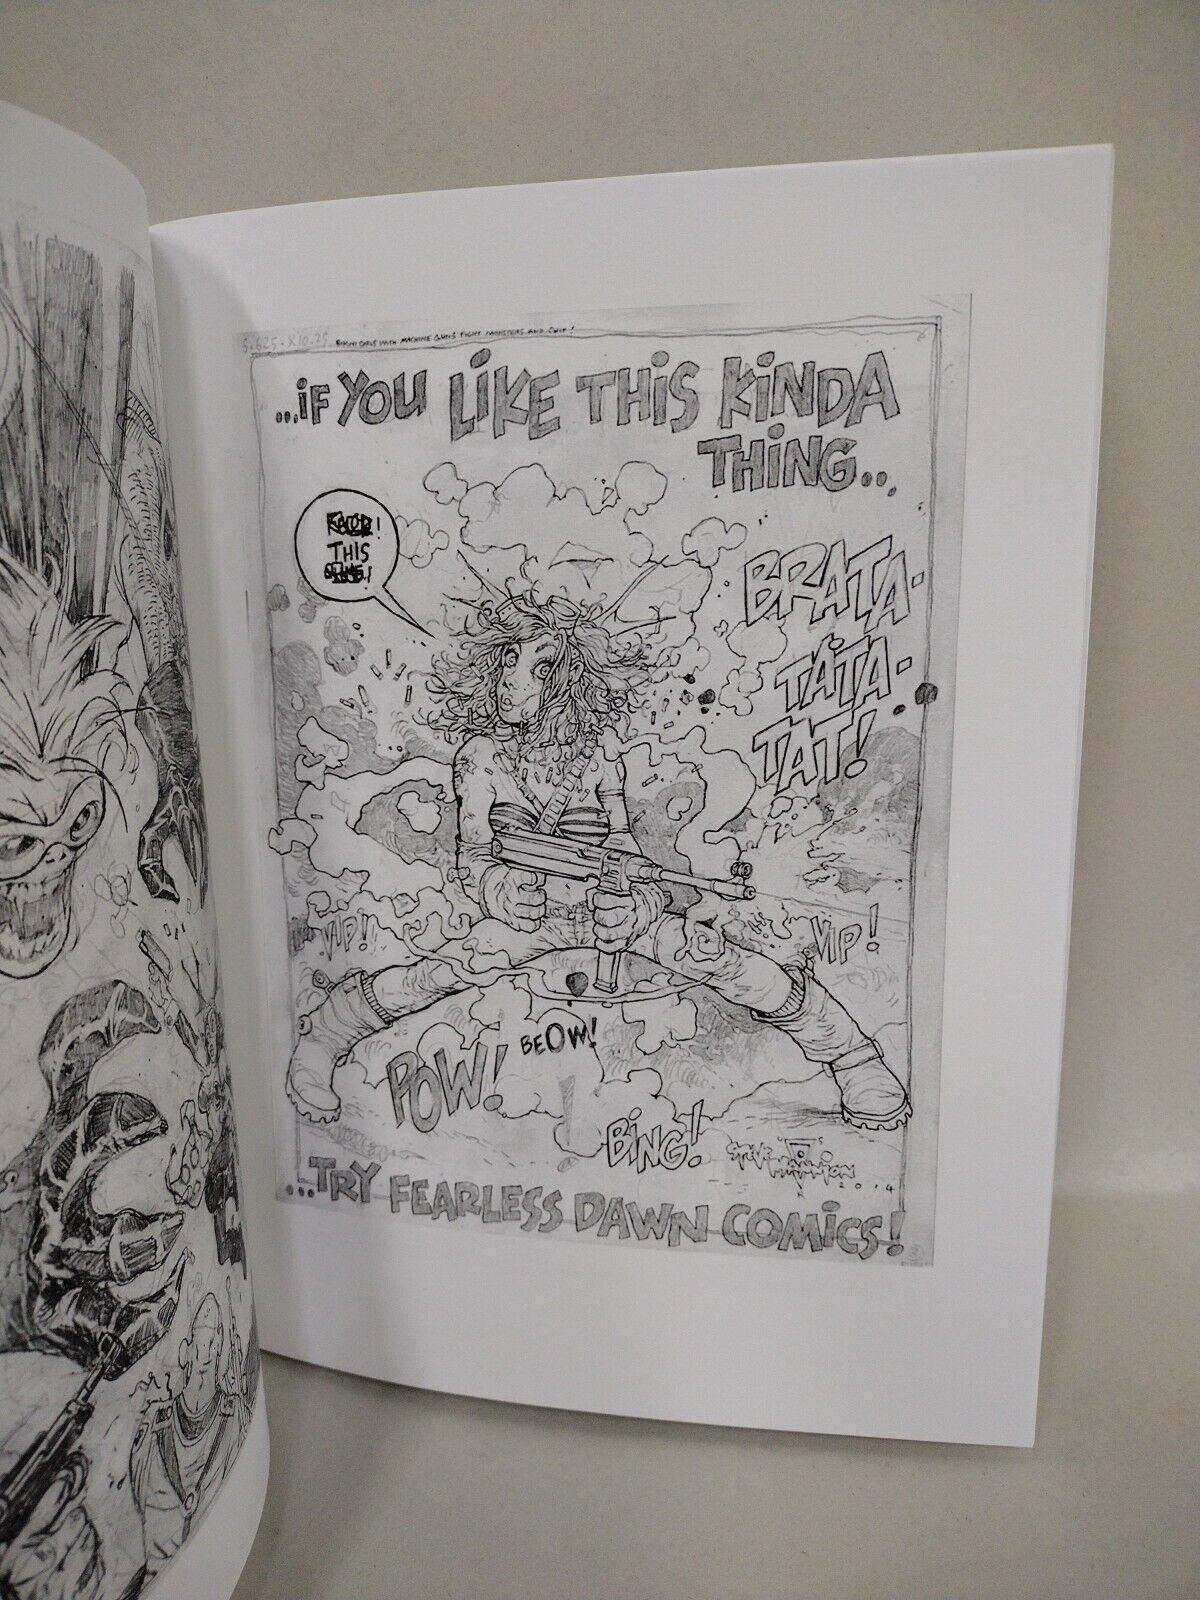 6.625 x 10.25 BIKINI GIRLS WITH MACHINE GUNS FIGHT MONSTERS AND SHIT!
...iF YOU LiKE THiS KiNDA
THiNG...
THIS
BRATA-
TATA-
TAT!
VIP!
VIP!
POW!
BEOW!
BiNG!
STEVE MANNION
...TRY FEARLESS DAWN COMiCS!